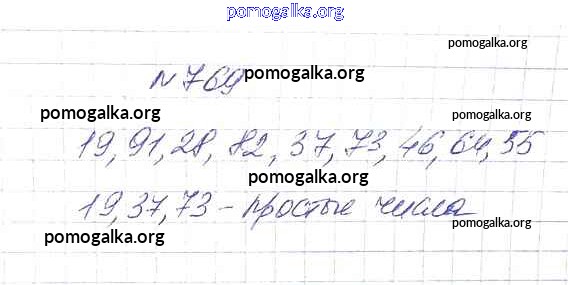 pomogalka.org
pomogalka.org
№769 pomogalka.org
pomogalka.org pomogalka.org
19, 91, 28, 82, 37, 73, 46, 64, 55
pomogalka.org
19, 37, 73 - простые числа
pomogalka.org pomogalka.org